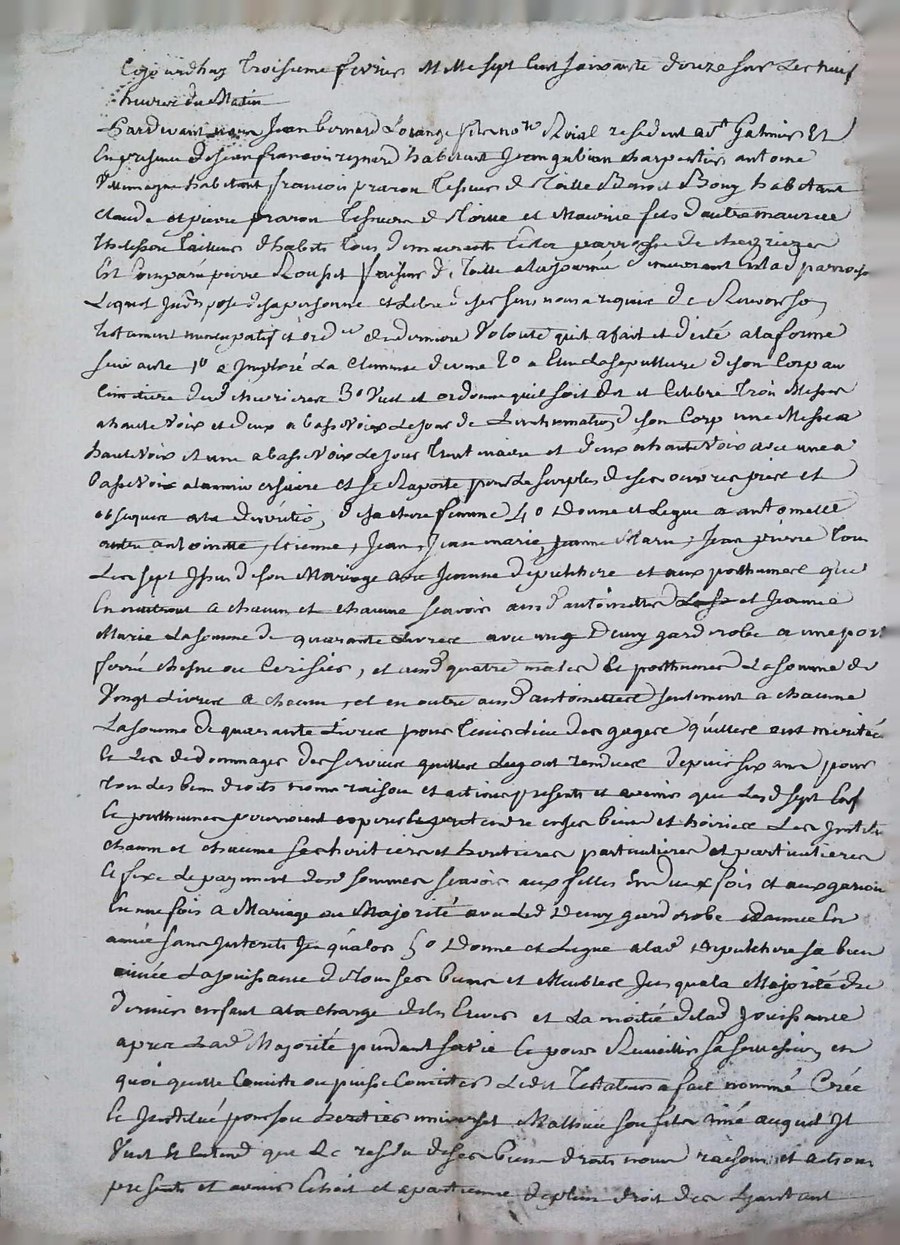 Cejourdhuy troisieme fevrier Mille sept cent soixante douze sur Les neuf
heures du Matin
Pardevant nous Jean Bernard Lorange no.re Roial resident a S.t Galmier Et
En presence de Jean francois reynard habitant Jean charpentier antoine
habitant francois praron Tisseur de Toille Benoit Bouy habitant
Claude et pierre praron Tisseurs de Toille et Maurice fils d'autre maurice
Tailleur d'habits tous demeurants En la parroisse de chevrieres
Est Comparu pierre Rousset Tisseur de Toille demeurant En lad parroisse
Lequel disposé de sa personne et Libre de ses sens nous a requis de Recevoir son
testament nuncupatif et ord.re de derniere Volonté qu'il a fait et dicté a la forme
suivante 1º a Imploré La Clemence divine 2º a Elu La sepulture de son Corp au
Cimitiere dud chevrieres 3º Veut et ordonne qu'il soit dit et Celebré Trois Messes
a haute Voix et deux a basse Voix Le jour de L'inhumation de son Corp une Messe a
haute Voix et une a basse Voix Le jour Trentenaire et deux a haute Voix avec une a
basse Voix a l'anniversaire et se Raporte pour Le surplus de ses oeuvres pies et
obseques a la devotion de sa chere femme 4º Donne et Legue a antoinette
autre antoinette, Etienne, Jean, Jean marie, Jeanne Marie, Jean pierre Tous
Les sept Issus de son Mariage avec Jeanne depulchere et aux posthumes que
En naitront a chacun et chacune scavoir aus.d antoinettes et Jeanne
Marie La somme de quarante Livres avec un garderobe a une porte
ferré chesne ou Cerisier, et aus.d quatre males Et posthumes La somme de
Vingt Livres a chacun, et en outre aus.d antoinettes seulement a chacune
La somme de quarante Livres pour Tenir Lieu des gages qu'elles ont mérités
Et Les dedommager des services qu'elles Luy ont rendues depuis six ans pour
tous Les biens droits noms raisons et actions presents et avenir que Lesd sept Enf
Et posthumes pourroient esperer et pretendre en ses biens et hoiries Les Instit
chacun et chacune ses heritiers et heritieres particuliers et particulieres
Et fixe Le payment desd sommes scavoir aux filles En deux fois et aux garcons
En une fois a Mariage ou Majorité avec Led garderobe d'année En
année sans Interets Jusqu'alors 5º Donne et Legue a lad Depulchere sa bien
aimée La jouissance de Tous ses biens et Meubles Jusqua la Majorité du
dernier enfant a la charge de les Elever et La moitié de lad Jouissance
apres Lad Majorité pendant sa vie Et pour Recueillir sa succession en
quoi quelle Consiste ou puisse Consister Ledit Testateur a fait nommé Créé
Et Institué pour son heritier universel Mathieu son fils ainé auquel Il
Veut Et Entend que Le reste de ses biens droits noms raisons et actions
presents et avenir Echoit et apartienne de plein droit des